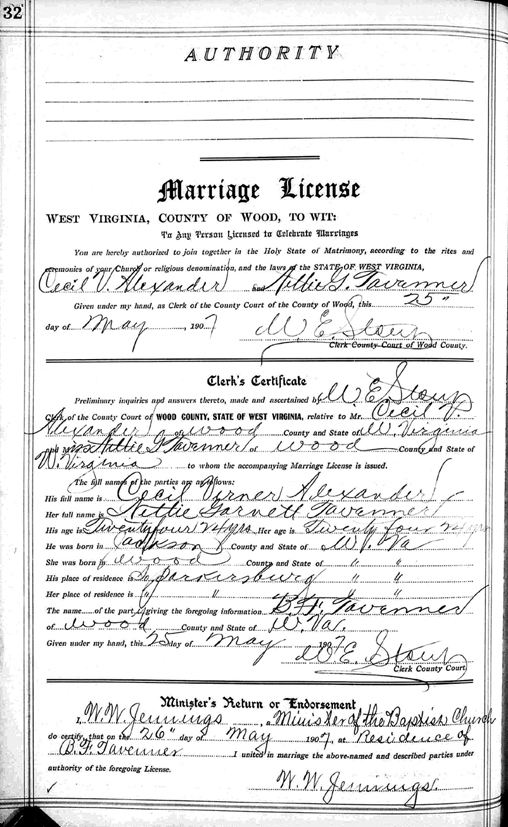 32
AUTHORITY
Marriage License
WEST VIRGINIA, COUNTY OF WOOD, TO WIT:
To Any Person Licensed to Celebrate Marriages
You are hereby authorized to join together in the Holy State of Matrimony, according to the rites and
ceremonies of your Church or religious denomination, and the laws of the STATE OF WEST VIRGINIA,
Cecil V. Alexander and Nettie G. Tavenner
Given under my hand, as Clerk of the County Court of the County of Wood, this 25"
day of May, 1907 W. E. Stout
Clerk County Court of Wood County.
Clerk's Certificate
Preliminary inquiries and answers thereto, made and ascertained by W. E. Stout
Clerk of the County Court of WOOD COUNTY, STATE OF WEST VIRGINIA, relative to Mr. Cecil V.
Alexander of Wood County and State of W. Virginia
and Nettie G Tavenner of Wood County and State of
W. Virginia to whom the accompanying Marriage License is issued.
The full names of the parties are as follows:
His full name is Cecil Virner Alexander
Her full name is Nettie Garnett Tavenner
His age is Twenty four 24 yrs Her age is Twenty four 24 yrs
He was born in Jackson County and State of W. Va
She was born in Wood County and State of " "
His place of residence is So Parkersburg " "
Her place of residence is " " " "
The name of the party giving the foregoing information B. F. Tavenner
of Wood County and State of W. Va.
Given under my hand, this 25 day of May 1907
W. E. Stout
Clerk County Court
Minister's Return or Endorsement
I, W. W. Jennings, a Minister of the Baptist Church
do certify, that on the 26" day of May 1907, at Residence of
B. F. Tavenner I united in marriage the above-named and described parties under
authority of the foregoing License.
W. W. Jennings.